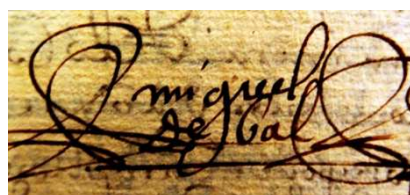 miguel
de Gal